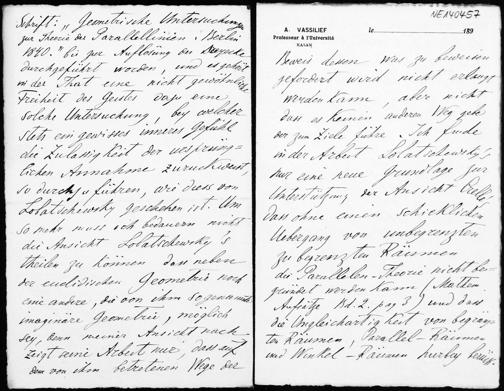 Schrift: „Geometrische Untersuchungen
zur Theorie der Parallellinien, Berlin
1840." bis zur Auflösung der Dreiecke
durchgeführt worden, und es gehört
in der That eine nicht gewöhnliche
Freiheit des Geistes dazu eine
solche Untersuchung, bey welcher
stets ein gewisses inneres Gefühl
die Zulässigkeit der ursprüng-
lichen Annahme zurückweist,
so durchzuführen, wie dass von
Lobatschewsky geschehen ist. Um
so mehr muss ich bedauern nicht
die Ansicht Lobatschewsky's
theilen zu können dass neben
der euclidischen Geometrie noch
eine andere, die von ihm sogenannte
imaginäre Geometrie, möglich
sey, denn meiner Ansicht nach
zeigt seine Arbeit nur, dass auf
dem von ihm betretenen Wege der
NE140457
A. VASSILIEF
Professeur à l'Université
KASAN
le 189
Beweis dessen was zu beweisen
gefordert wird nicht erlangt
werden kann, aber nicht
dass es keinen anderen Weg gebe
der zum Ziele führe. Ich finde
in der Arbeit Lobatschewsky's
nur eine neue Grundlage zur
Unterstützung der Ansicht
dass ohne einen schicklichen
Uebergang von unbegrenzten
zu begrenzten Räumen
die Parallelen-Theorie nicht be-
gründet werden kann (
Aufsätze Bd. 2. pag 3) und dass
die Ungleichartigkeit von begrenz-
ten Räumen, Parallel-Räumen
und Winkel-Räumen hierbey